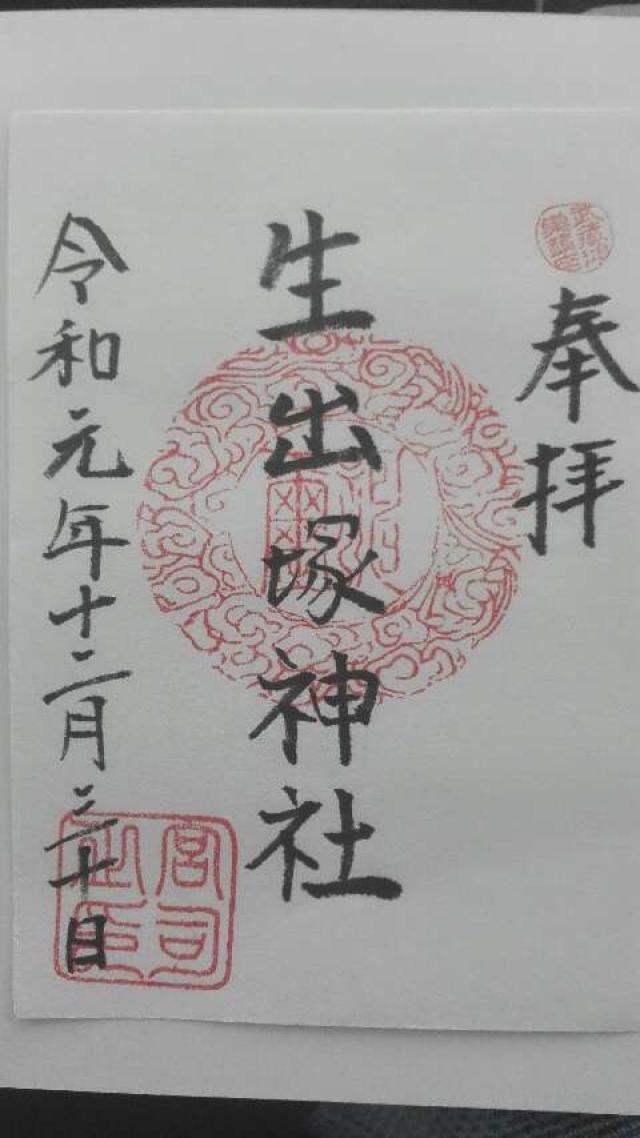 奉拝
生出塚神社
令和元年十二月三十日
宮司之印